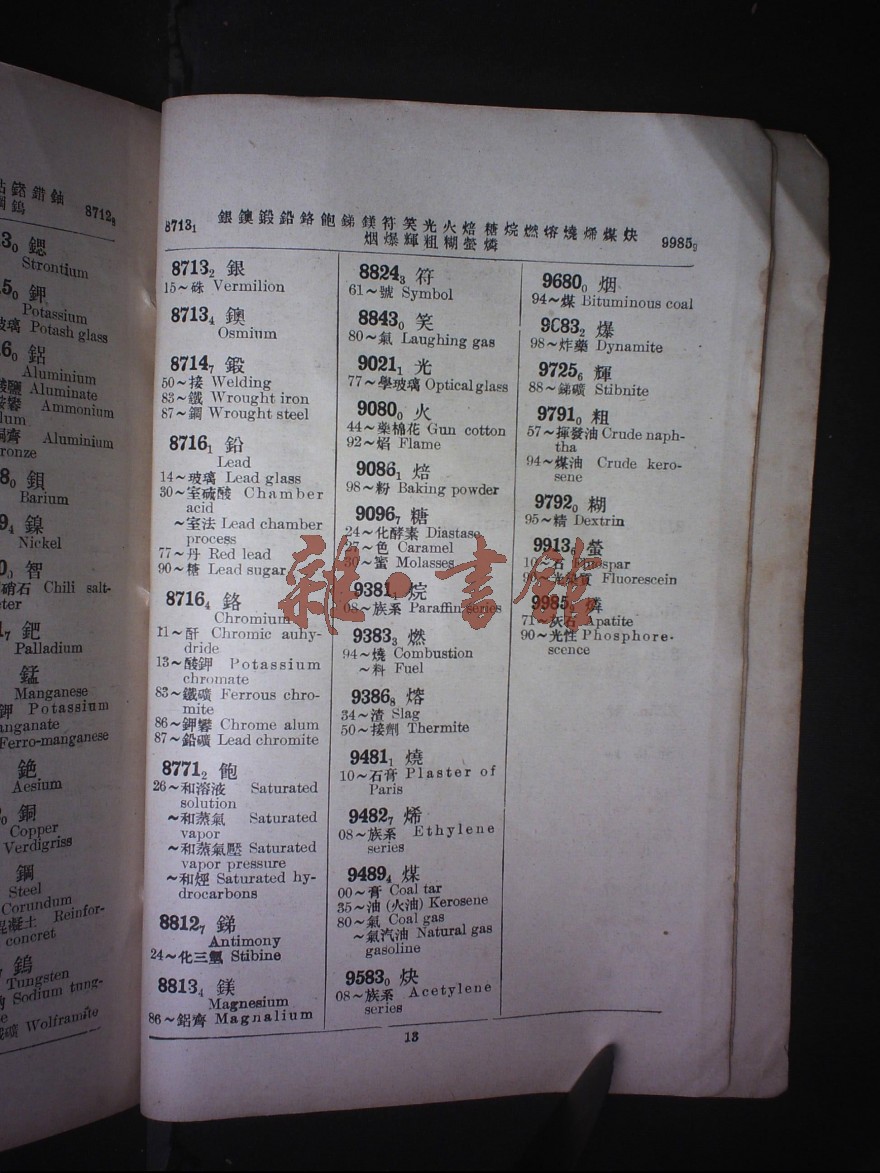 鍺 錯 鈾
8712₉
鎢
鍶
Strontium
鉀
Potassium
玻璃 Potash glass
鋁
Aluminium
Aluminate
Ammonium
Aluminium
鋇
Barium
鎳
Nickel
智
硝石 Chili salt-
鈀
Palladium
錳
Manganese
鉀 Potassium
Ferro-manganese
銫
銅
Copper
Verdigriss
鋼
Steel
Corundum
混凝土 Reinfor-
concret
鎢
Tungsten
Sodium tung-
Wolframite
8713₁
銀 鐭 鍛 鉛 鉻 飽 銻 鎂 符 笑 光 火 焙 糖 烷 燃 熔 燒 烯 煤 炔
烟 爆 輝 粗 糊 螢 燐
9985₉
8713₂ 銀
15~硃 Vermilion
8713₄ 鐭
Osmium
8714₇ 鍛
50~接 Welding
83~鐵 Wrought iron
87~鋼 Wrought steel
8716₁ 鉛
Lead
14~玻璃 Lead glass
30~室硫酸 Chamber
acid
~室法 Lead chamber
process
77~丹 Red lead
90~糖 Lead sugar
8716₄ 鉻
Chromium
11~酐 Chromic auhy-
dride
13~酸鉀 Potassium
chromate
83~鐵礦 Ferrous chro-
mite
86~鉀礬 Chrome alum
87~鉛礦 Lead chromite
8771₂ 飽
26~和溶液 Saturated
solution
~和蒸氣 Saturated
vapor
~和蒸氣壓 Saturated
vapor pressure
~和烴 Saturated hy-
drocarbons
8812₇ 銻
Antimony
24~化三氫 Stibine
8813₄ 鎂
Magnesium
86~鋁齊 Magnalium
8824₃ 符
61~號 Symbol
8843₀ 笑
80~氣 Laughing gas
9021₁ 光
77~學玻璃 Optical glass
9080₀ 火
44~藥棉花 Gun cotton
92~焰 Flame
9086₁ 焙
98~粉 Baking powder
9096₇ 糖
24~化酵素 Diastase
27~色 Caramel
30~蜜 Molasses
9381₁ 烷
08~族系 Paraffin series
9383₃ 燃
94~燒 Combustion
~料 Fuel
9386₈ 熔
34~渣 Slag
50~接劑 Thermite
9481₁ 燒
10~石膏 Plaster of
Paris
9482₇ 烯
08~族系 Ethylene
series
9489₄ 煤
00~膏 Coal tar
35~油 (火油) Kerosene
80~氣 Coal gas
~氣汽油 Natural gas
gasoline
9583₀ 炔
08~族系 Acetylene
series
9680₀ 烟
94~煤 Bituminous coal
9683₂ 爆
98~炸藥 Dynamite
9725₆ 輝
88~銻礦 Stibnite
9791₀ 粗
57~揮發油 Crude naph-
tha
94~煤油 Crude kero-
sene
9792₀ 糊
95~精 Dextrin
9913₆ 螢
10~石 Fluospar
光染質 Fluorescein
9985₉ 燐
71~灰石 Apatite
90~光性 Phosphore-
scence
13
雜·書館